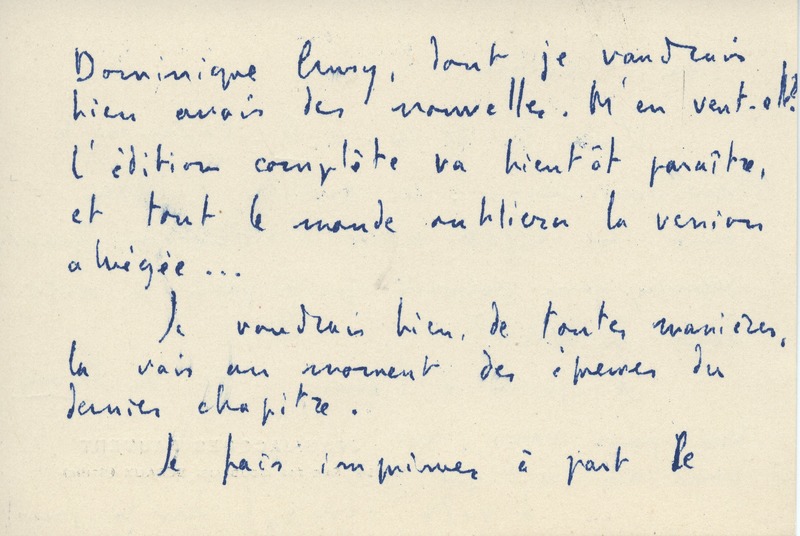 Dominique Aury, dont je voudrais
bien avoir des nouvelles. M'en veut-elle?
L'édition complète va bientôt paraître,
et tout le monde oubliera la version
abrégée...
Je voudrais bien, de toutes manières,
la voir au moment des épreuves du
dernier chapitre.
Je fais imprimer à part le